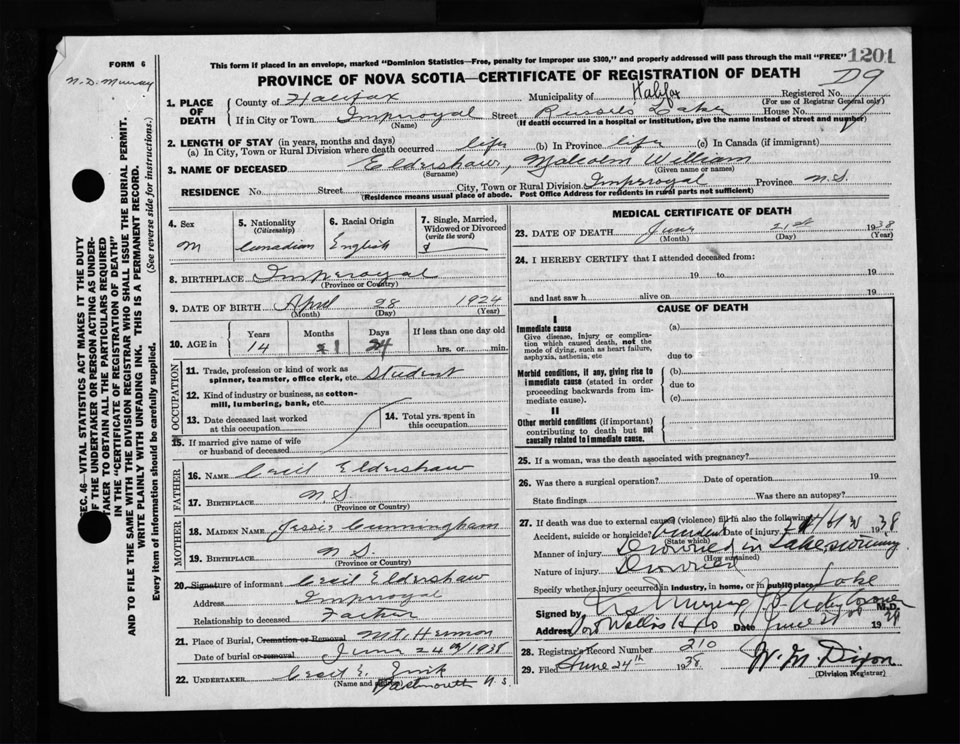 FORM 6
This form if placed in an envelope, marked "Dominion Statistics—Free, penalty for improper use $300," and properly addressed will pass through the mail "FREE"
1201
N. D. Murray
PROVINCE OF NOVA SCOTIA—CERTIFICATE OF REGISTRATION OF DEATH
D9
1. PLACE OF DEATH
County of Halifax Municipality of Halifax Registered No.
(For use of Registrar General only)
If in City or Town Imperoyal Street Lake House No.
(Name) (If death occurred in a hospital or institution, give the name instead of street and number)
2. LENGTH OF STAY (in years, months and days)
(a) In City, Town or Rural Division where death occurred life (b) In Province life (c) In Canada (if immigrant)
3. NAME OF DECEASED Eldershaw, Malcolm William
(Surname) (Given name or names)
RESIDENCE No. Street City, Town or Rural Division Imperoyal Province N.S.
(Residence means usual place of abode. Post Office Address for residents in rural parts not sufficient)
SEC. 46—VITAL STATISTICS ACT MAKES IT THE DUTY
OF THE UNDERTAKER OR PERSON ACTING AS UNDERTAKER
TO OBTAIN ALL THE PARTICULARS REQUIRED
IN THE "CERTIFICATE OF REGISTRATION OF DEATH"
AND TO FILE THE SAME WITH THE DIVISION REGISTRAR WHO SHALL ISSUE THE BURIAL PERMIT.
WRITE PLAINLY WITH UNFADING INK. THIS IS A PERMANENT RECORD.
Every item of information should be carefully supplied. (See reverse side for instructions.)
4. Sex
M
5. Nationality
(Citizenship)
Canadian
6. Racial Origin
English
7. Single, Married, Widowed or Divorced
(write the word)
8. BIRTHPLACE Imperoyal
(Province or Country)
9. DATE OF BIRTH April 28 1924
(Month) (Day) (Year)
10. AGE in
Years Months Days If less than one day old
14 1 24 hrs. or min.
OCCUPATION
11. Trade, profession or kind of work as spinner, teamster, office clerk, etc. Student
12. Kind of industry or business, as cotton-mill, lumbering, bank, etc.
13. Date deceased last worked at this occupation
14. Total yrs. spent in this occupation
15. If married give name of wife or husband of deceased
FATHER
16. NAME Cecil Eldershaw
17. BIRTHPLACE N.S.
(Province or Country)
MOTHER
18. MAIDEN NAME Jessie Cunningham
19. BIRTHPLACE N S.
(Province or Country)
20. Signature of informant Cecil Eldershaw
Address Imperoyal
Relationship to deceased Father
21. Place of Burial, Cremation or Removal Mt. Hermon
Date of burial or removal June 24th/1938
22. UNDERTAKER Cecil E.
(Name and address)
Dartmouth N.S.
MEDICAL CERTIFICATE OF DEATH
23. DATE OF DEATH June 21st 1938
(Month) (Day) (Year)
24. I HEREBY CERTIFY that I attended deceased from:
19 to 19
and last saw h alive on 19
CAUSE OF DEATH
I
Immediate cause
Give disease, injury or complication which caused death, not the mode of dying, such as heart failure, asphyxia, asthenia, etc
(a)
due to
Morbid conditions, if any, giving rise to immediate cause (stated in order proceeding backwards from immediate cause).
(b)
due to
(c)
II
Other morbid conditions (if important) contributing to death but not causally related to immediate cause.
25. If a woman, was the death associated with pregnancy?
26. Was there a surgical operation? Date of operation 19
State findings Was there an autopsy?
27. If death was due to external causes (violence) fill in also the following:
Accident, suicide or homicide? Accident Date of injury 1938
(State which)
Manner of injury Drowned in Lake swimming
(How sustained)
Nature of injury Drowned
Specify whether injury occurred in industry, in home, or in public place Lake
Signed by Coroner M.D.
Address Port Wallis Date June 21st 1938
28. Registrar's Record Number 210
29. Filed June 24th 1938 W. M. Dixon
(Division Registrar)